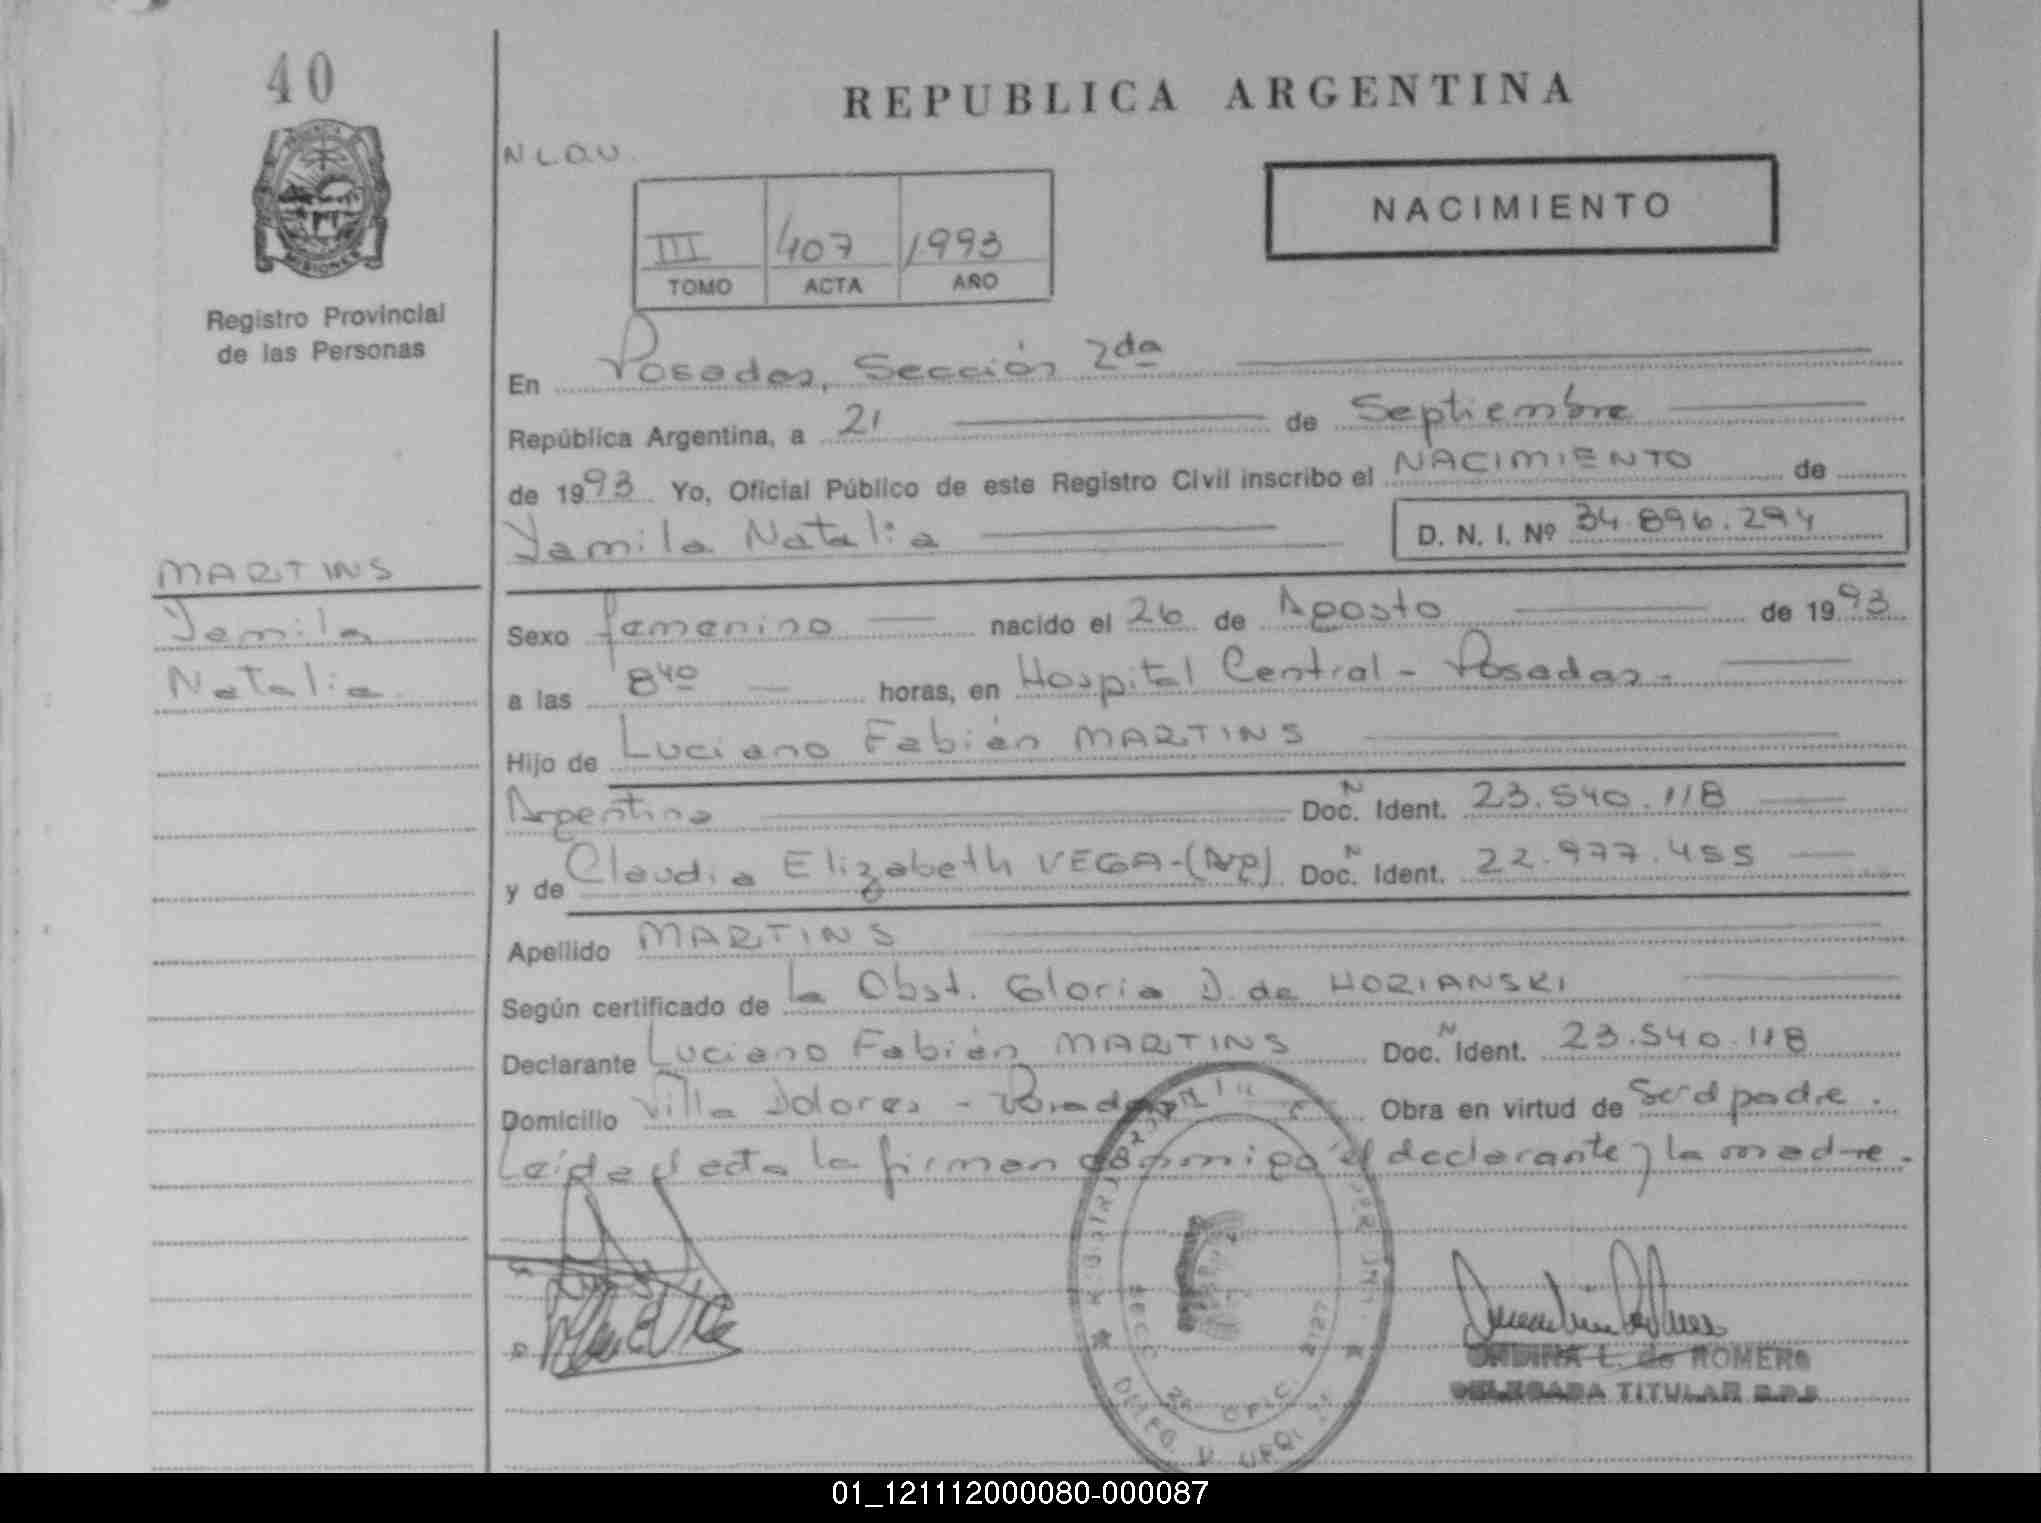 40
REPUBLICA ARGENTINA
N L.O.U.
NACIMIENTO
III 407 1993
TOMO ACTA AÑO
Registro Provincial
de las Personas
En Posadas, Sección 2da
República Argentina, a 21 de Septiembre
de 1993 Yo, Oficial Público de este Registro Civil inscribo el NACIMIENTO de
Yamila Natalia D. N. I. Nº 34.896.294
MARTINS
Yamila
Natalia
Sexo femenino nacido el 26 de Agosto de 1993
a las 8 40 horas, en Hospital Central - Posadas.-
Hijo de Luciano Fabián MARTINS
Argentino Doc. N Ident. 23.540.118
y de Claudia Elizabeth VEGA-(Arg) Doc. N Ident. 22.977.455
Apellido MARTINS
Según certificado de la Obst. Gloria D. de HORIANSKI
Declarante Luciano Fabián MARTINS Doc. N Ident. 23.540.118
Domicilio Villa Dolores - Posadas Obra en virtud de Ser el padre.
Leída el acta la firman conmigo el declarante y la madre.
ONDINA L. de ROMERO
DELEGADA TITULAR R.P.P.
01_121112000080-000087